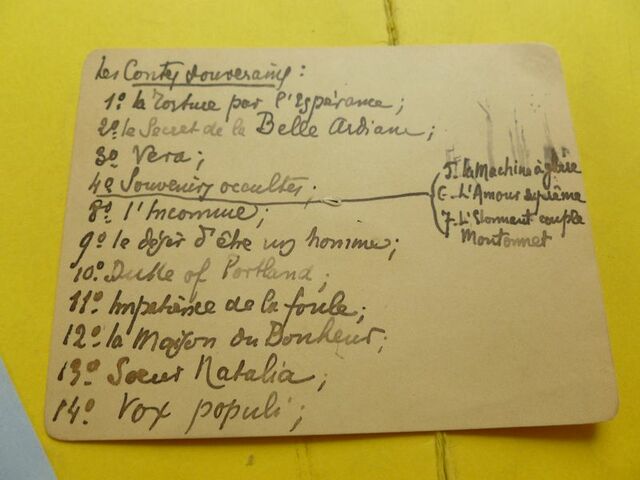 Les Contes souverains :
1º la Torture par l'Espérance ;
2º le Secret de la Belle Ardiane ;
3º Vera ;
4º Souvenirs occultes ;
5. la Machine à gloire
6. L'Amour suprême
7. L'Etonnant couple
Montonnet
8º l'Inconnue ;
9º le désir d'être un homme ;
10º Duke of Portland ;
11º Impatience de la foule ;
12º la Maison du Bonheur ;
13º Sœur Natalia ;
14º Vox populi ;